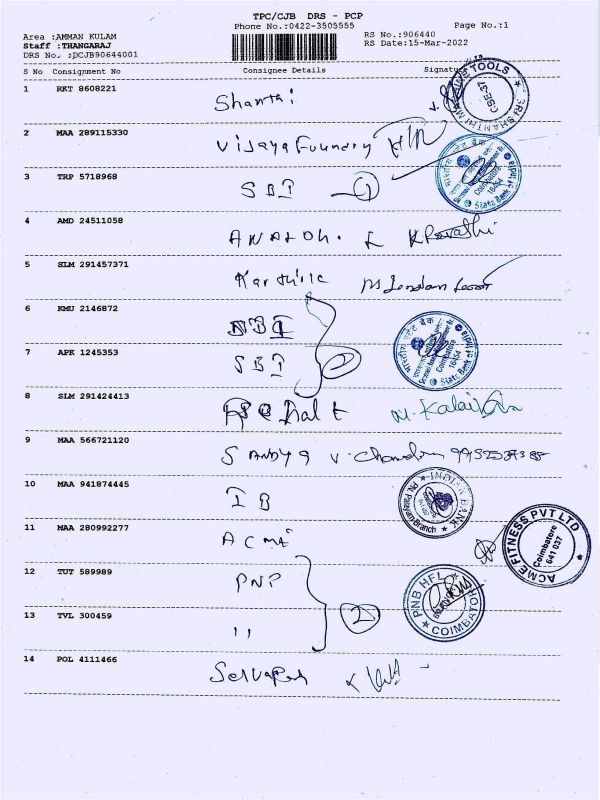 TPC/CJB DRS - PCP
Phone No.:0422-3505555 Page No.:1
Area :AMMAN KULAM RS No.:906440
Staff :THANGARAJ RS Date:15-Mar-2022
DRS No. :DCJB90644001
S No Consignment No Consignee Details Signature
1 RKT 8608221 Shanthi
SRI SHANTHI MACHINE TOOLS
CBE-37
2 MAA 289115330 Vijaya Foundry
3 TRP 5718968 SBI 1
भारतीय स्टेट बैंक
Coimbatore
16454
State Bank of India
4 AMD 24511058
5 SLM 291457371 Karthik
6 KMU 2146872 SBI
7 APK 1245353 SBI 2
भारतीय स्टेट बैंक
Coimbatore
16454
State Bank of India
8 SLM 291424413
9 MAA 566721120 V. Chandra
10 MAA 941874445 IB
INDIAN BANK
P.N. Palayam Branch
11 MAA 280992277 ACME
ACME FITNESS PVT LTD
Coimbatore
641 037
12 TUT 589989 PNP
PNB HFL
COIMBATORE
13 TVL 300459 " 2
14 POL 4111466